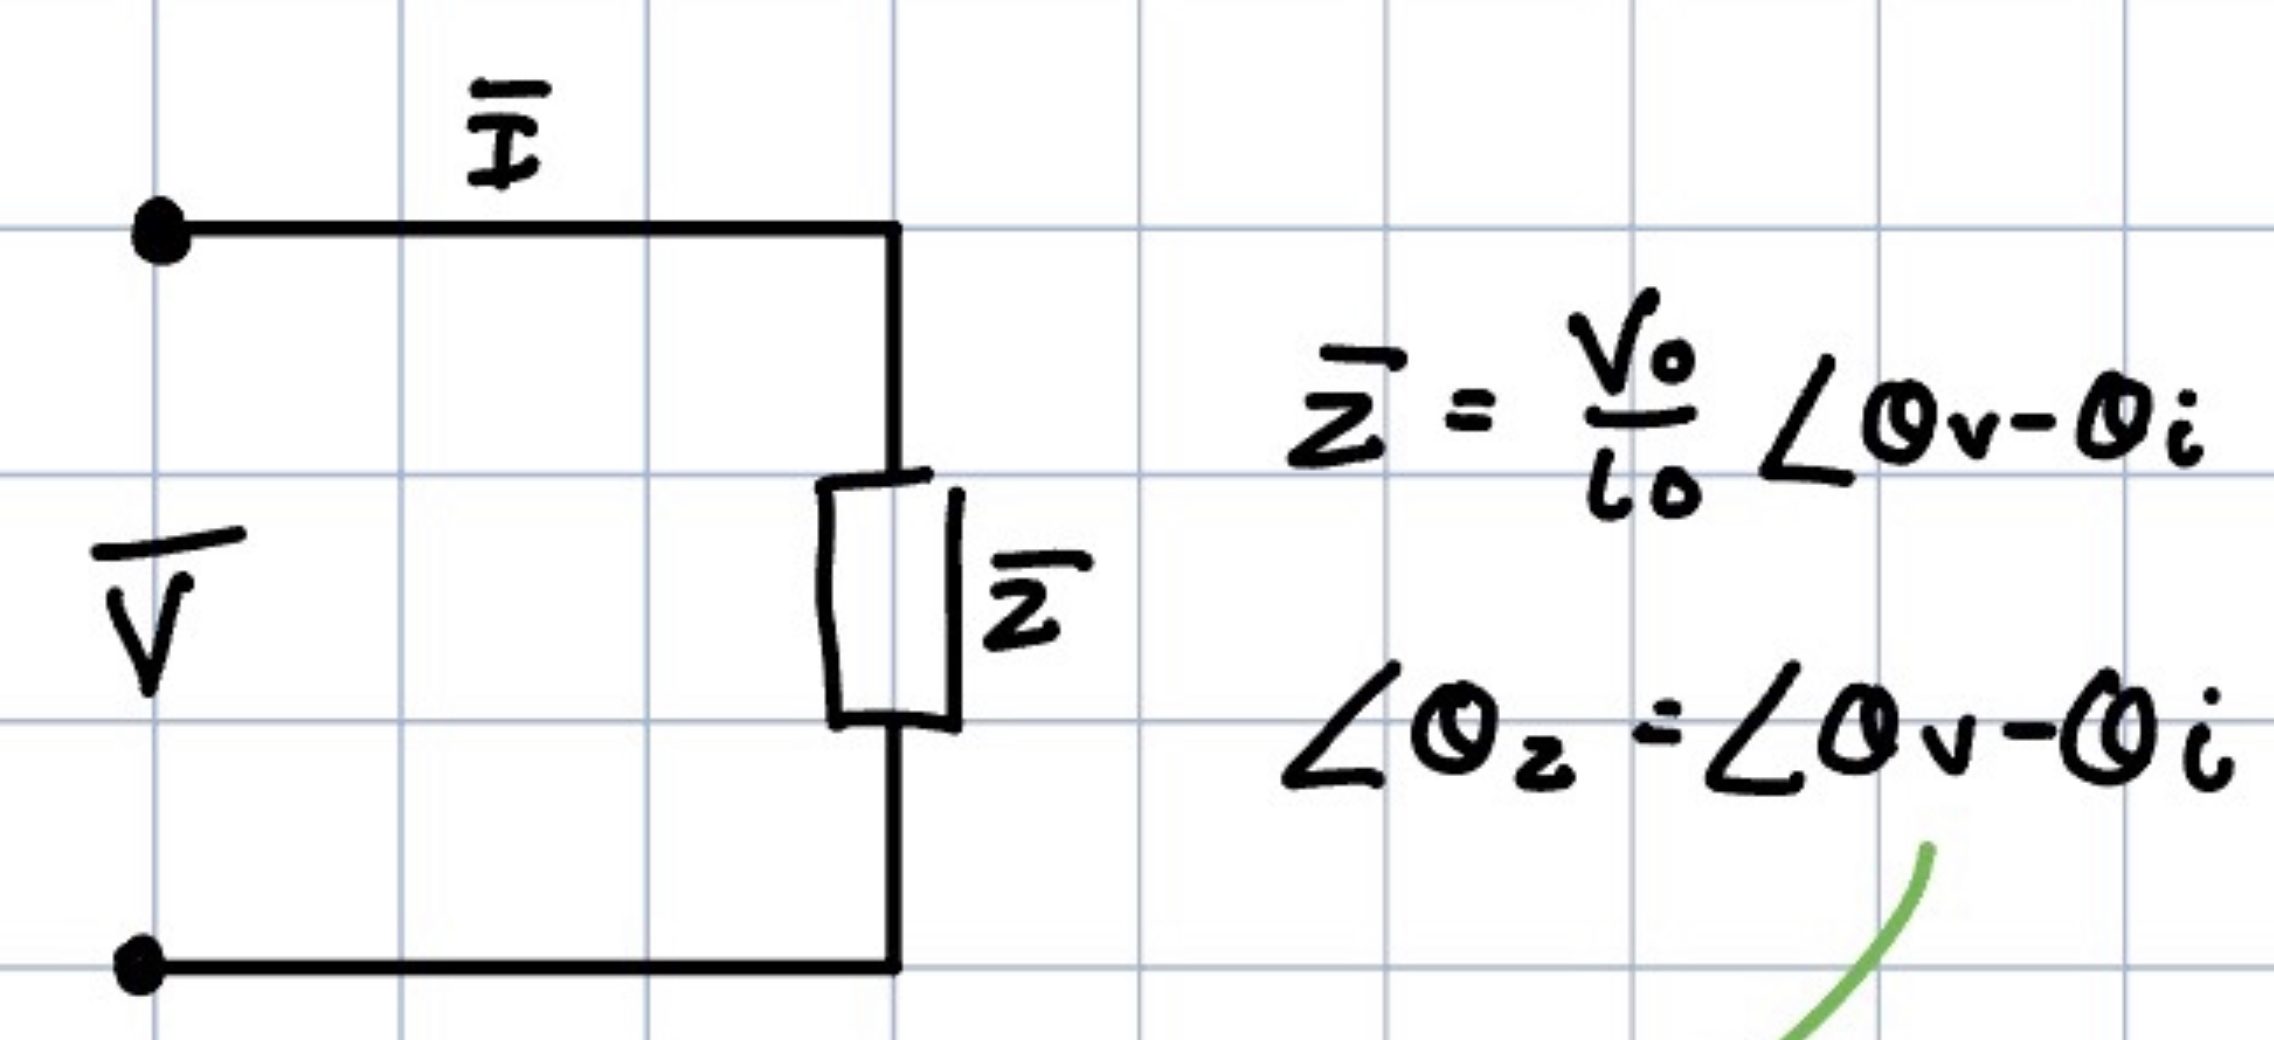 I̅
V̅
Z̅
Z̅ = V₀/i₀ ∠θv-θi
∠θz = ∠θv-θi